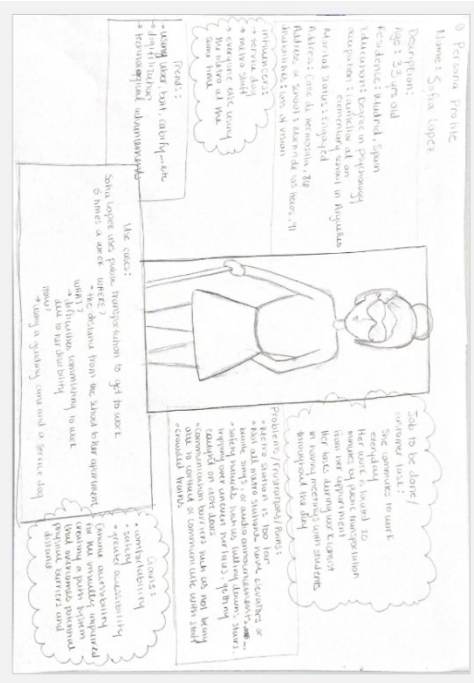 ① Persona Profile
Name: Sofia Lopez
Description:
Age: 33 yrs old
Residence: Madrid, Spain
Education: Degree in psychology
occupation: counselor at an
elementary school in Arguelles
Marital Status: Engaged
Address: Calle de Hermosilla, 86
Address of school:
disabilities: loss of vision
influencers:
• service dog
• metro staff
• everyone else using
the metro at the
same time
Trends:
• using uber, bolt, cabify...etc
• technological advancements
Use cases:
Sofia Lopez uses public transportation to get to work
5 times a week WHERE?
• the distance from the school to her apartment
WHAT?
• difficulties commuting to work
due to her disability
HOW?
• using a guiding cane and a service dog
Job to be done/
customer task:
She commutes to work
everyday
Her work is located 20
minutes by public transportation
from her apartment
Her tasks during work consist
in having meetings with students
throughout the day
Problems/Frustrations/Pains:
• Metro station is too far
• Not all metro stations have elevators or
braille signs, or audio announcements
• safety hazards such as falling down stairs,
tripping over uneven surfaces, getting
caught on train doors
• communication barriers such as not being
able to contact or communicate with staff
• crowded trains
Gains:
• comfortability
• safety
• greater accessibility
Ensure accessibility
for the visually impaired
creating a path/system
that overcomes potential
physical barriers and
distance